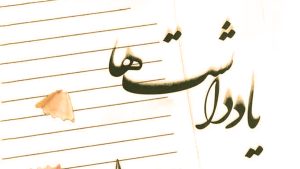 یادداشت‌ها